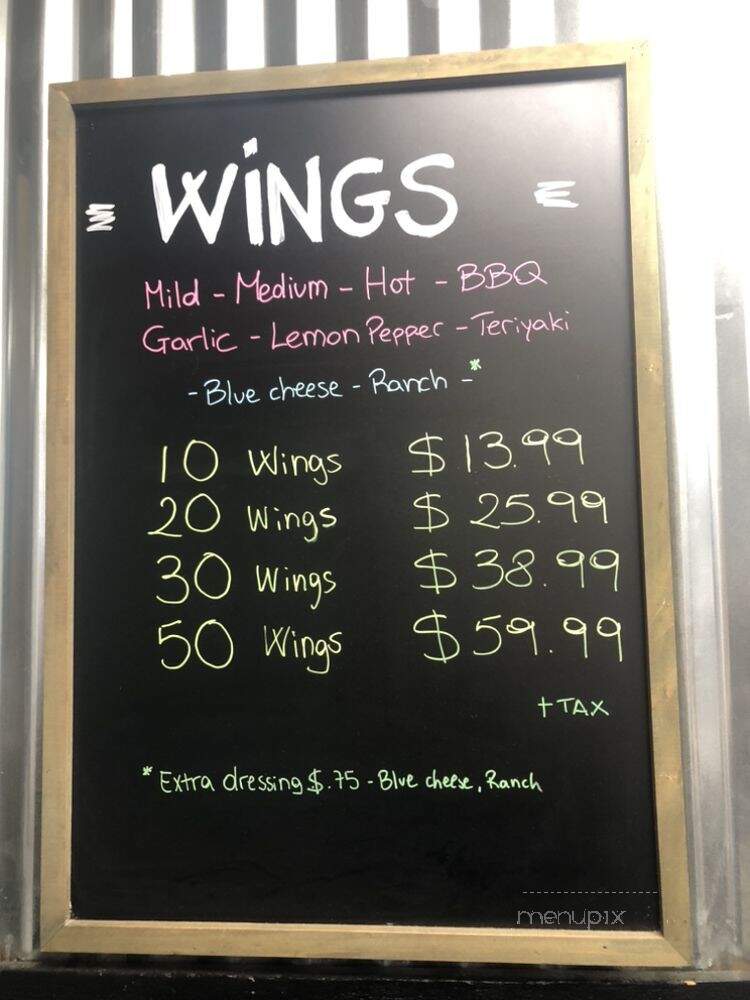 WiNGS
Mild - Medium - Hot - BBQ
Garlic - Lemon Pepper - Teriyaki
- Blue cheese - Ranch - *
10 Wings $ 13.99
20 Wings $ 25.99
30 Wings $ 38.99
50 Wings $ 59.99
+ TAX
* Extra dressing $.75 - Blue cheese, Ranch
menupix